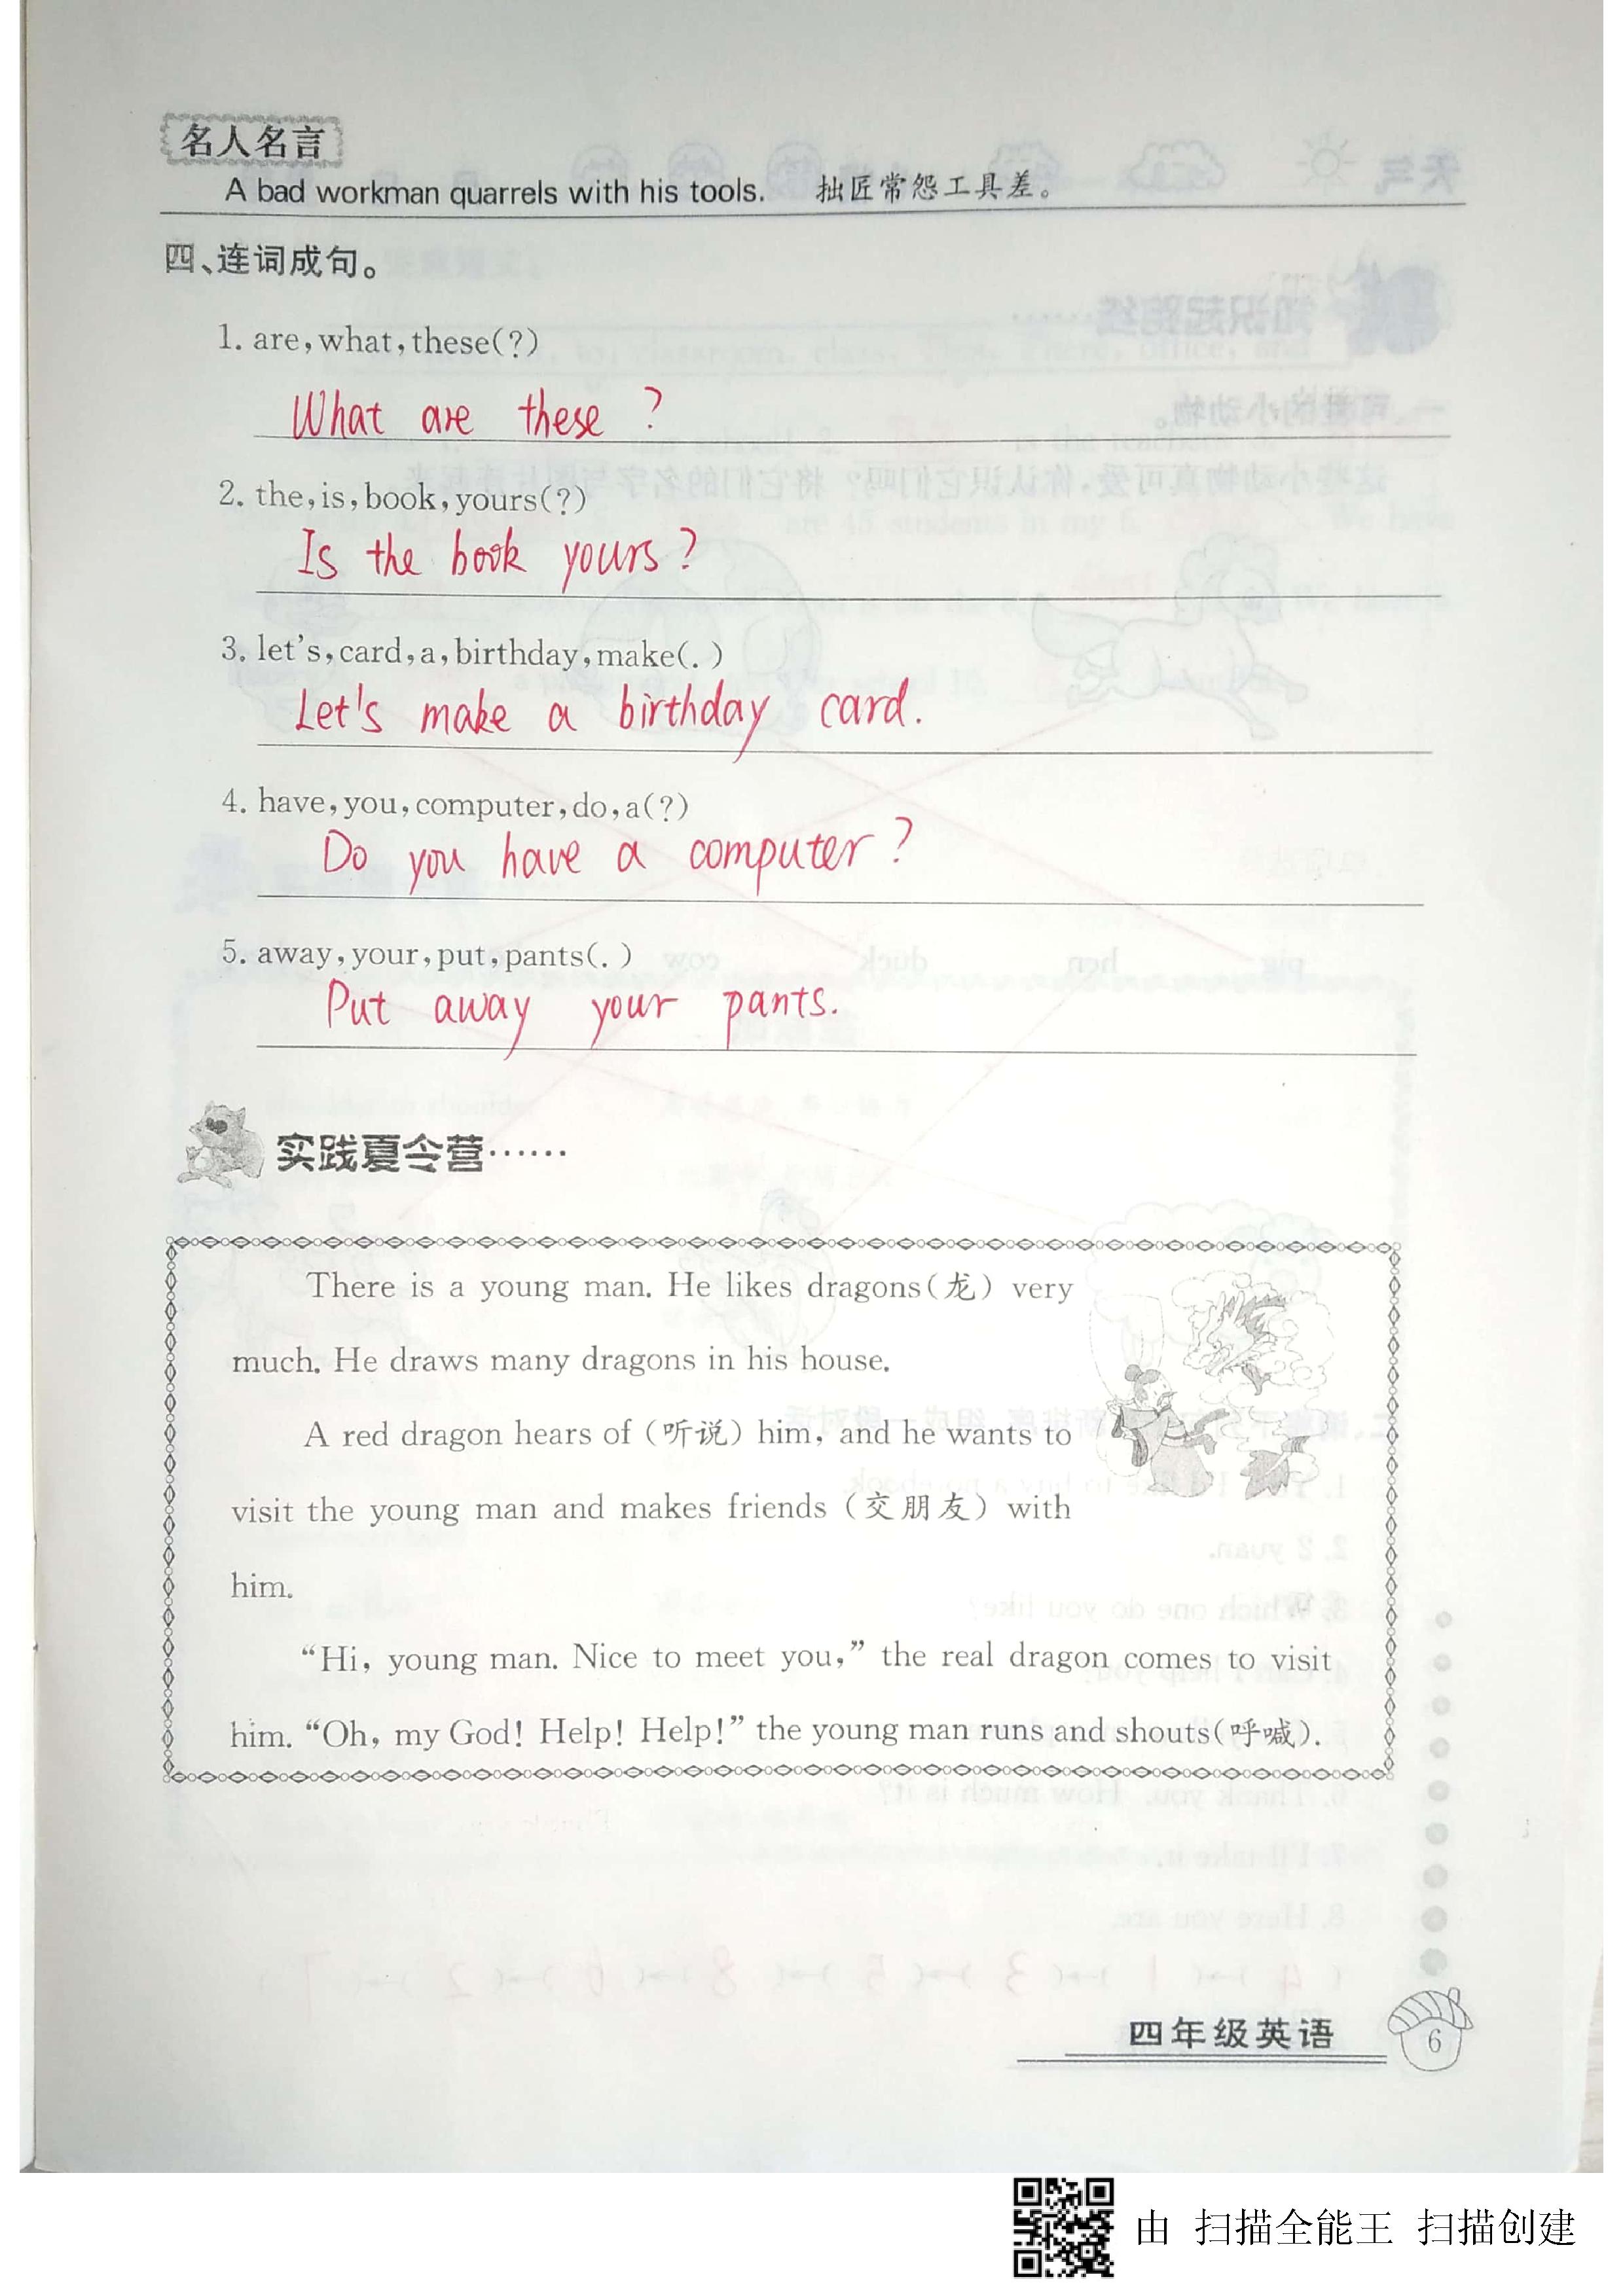 名人名言
A bad workman quarrels with his tools. 拙匠常怨工具差。
四、连词成句。
1. are,what,these(?)
What are these ?
2. the,is,book,yours(?)
Is the book yours?
3. let's,card,a,birthday,make(. )
Let's make a birthday card.
4. have,you,computer,do,a(?)
Do you have a computer?
5. away,your,put,pants(. )
Put away your pants.
实践夏令营……
There is a young man. He likes dragons(龙) very
much. He draws many dragons in his house.
A red dragon hears of (听说) him, and he wants to
visit the young man and makes friends (交朋友) with
him.
“Hi, young man. Nice to meet you,” the real dragon comes to visit
him. “Oh, my God! Help! Help!” the young man runs and shouts(呼喊).
四年级英语 6
由 扫描全能王 扫描创建